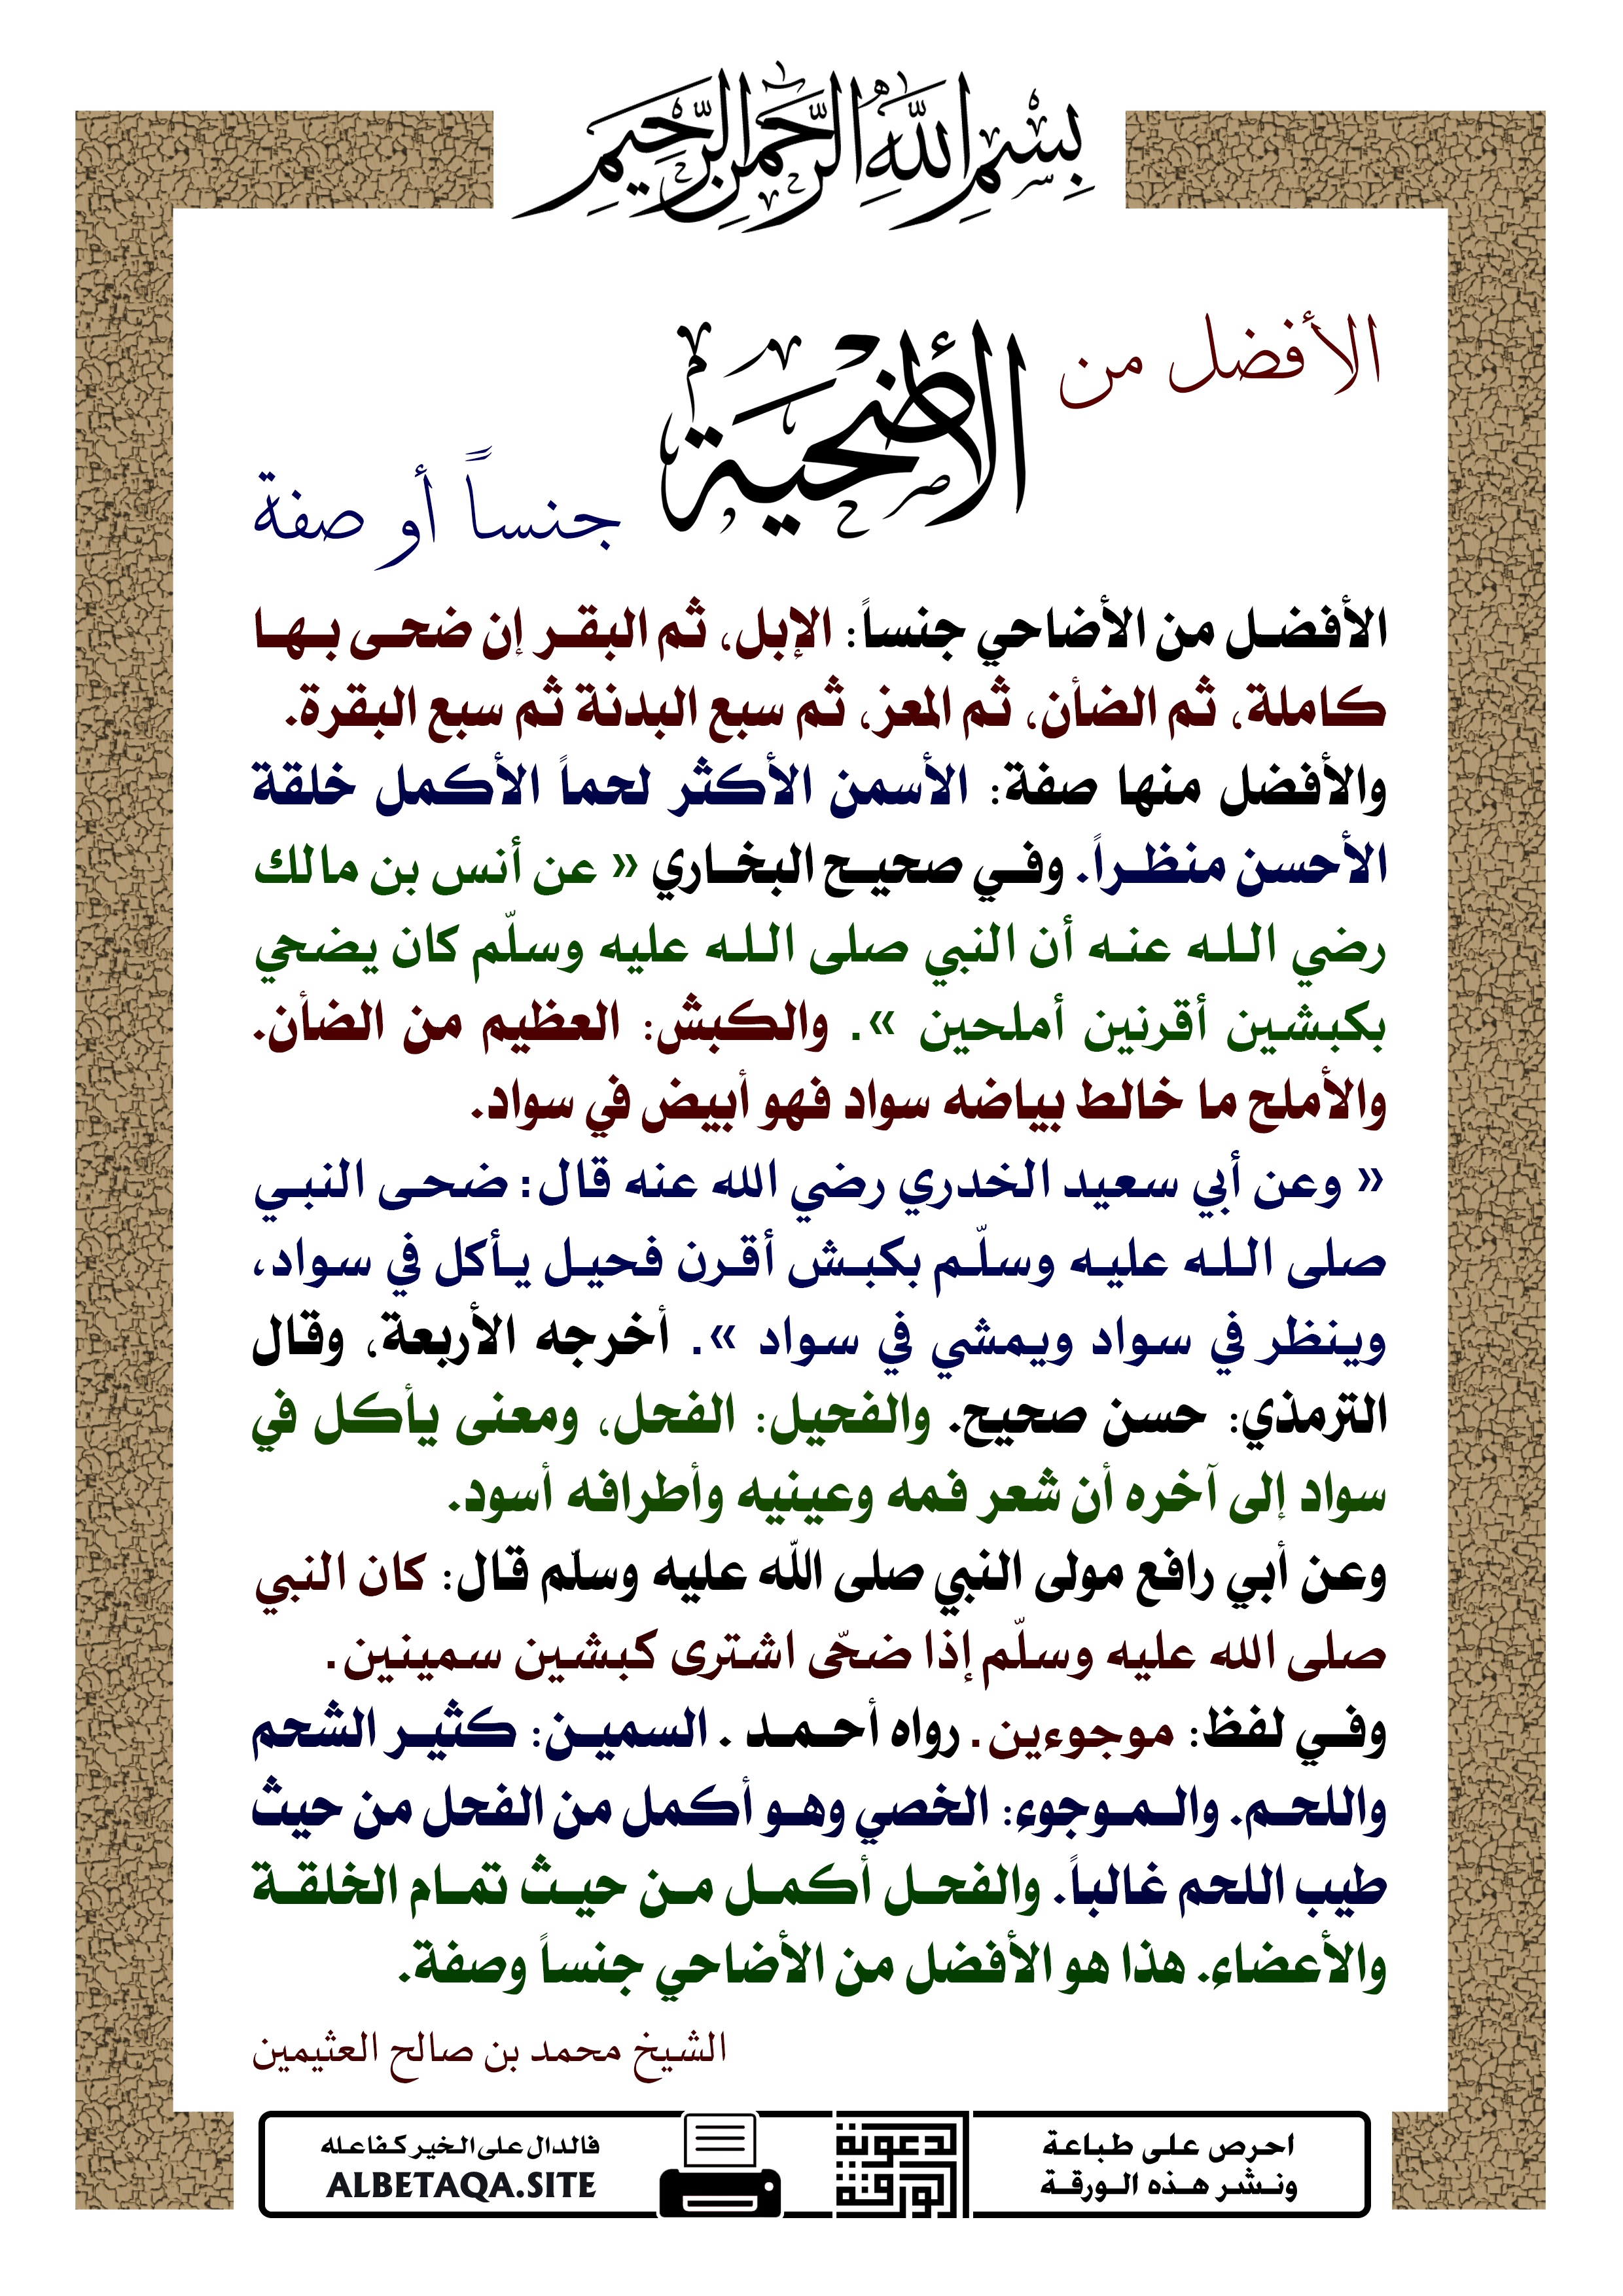 بِسْمِ اللَّهِ الرَّحْمَنِ الرَّحِيمِ
الأفضل من
الأضحية
جنساً أو صفة
الأفضل من الأضاحي جنساً: الإبل، ثم البقر إن ضحى بها
كاملة، ثم الضأن، ثم المعز، ثم سبع البدنة ثم سبع البقرة.
والأفضل منها صفة: الأسمن الأكثر لحماً الأكمل خلقة
الأحسن منظراً. وفي صحيح البخاري « عن أنس بن مالك
رضي الله عنه أن النبي صلى الله عليه وسلّم كان يضحي
بكبشين أقرنين أملحين ». والكبش: العظيم من الضأن.
والأملح ما خالط بياضه سواد فهو أبيض في سواد.
« وعن أبي سعيد الخدري رضي الله عنه قال: ضحى النبي
صلى الله عليه وسلّم بكبش أقرن فحيل يأكل في سواد،
وينظر في سواد ويمشي في سواد ». أخرجه الأربعة، وقال
الترمذي: حسن صحيح. والفحيل: الفحل، ومعنى يأكل في
سواد إلى آخره أن شعر فمه وعينيه وأطرافه أسود.
وعن أبي رافع مولى النبي صلى الله عليه وسلّم قال: كان النبي
صلى الله عليه وسلّم إذا ضحّى اشترى كبشين سمينين.
وفي لفظ: موجوءين. رواه أحمد . السمين: كثير الشحم
واللحم. والموجوء: الخصي وهو أكمل من الفحل من حيث
طيب اللحم غالباً. والفحل أكمل من حيث تمام الخلقة
والأعضاء. هذا هو الأفضل من الأضاحي جنساً وصفة.
الشيخ محمد بن صالح العثيمين
احرص على طباعة
ونشر هذه الورقة
الورقة
لدعوية
فالدال على الخير كفاعله
ALBETAQA.SITE